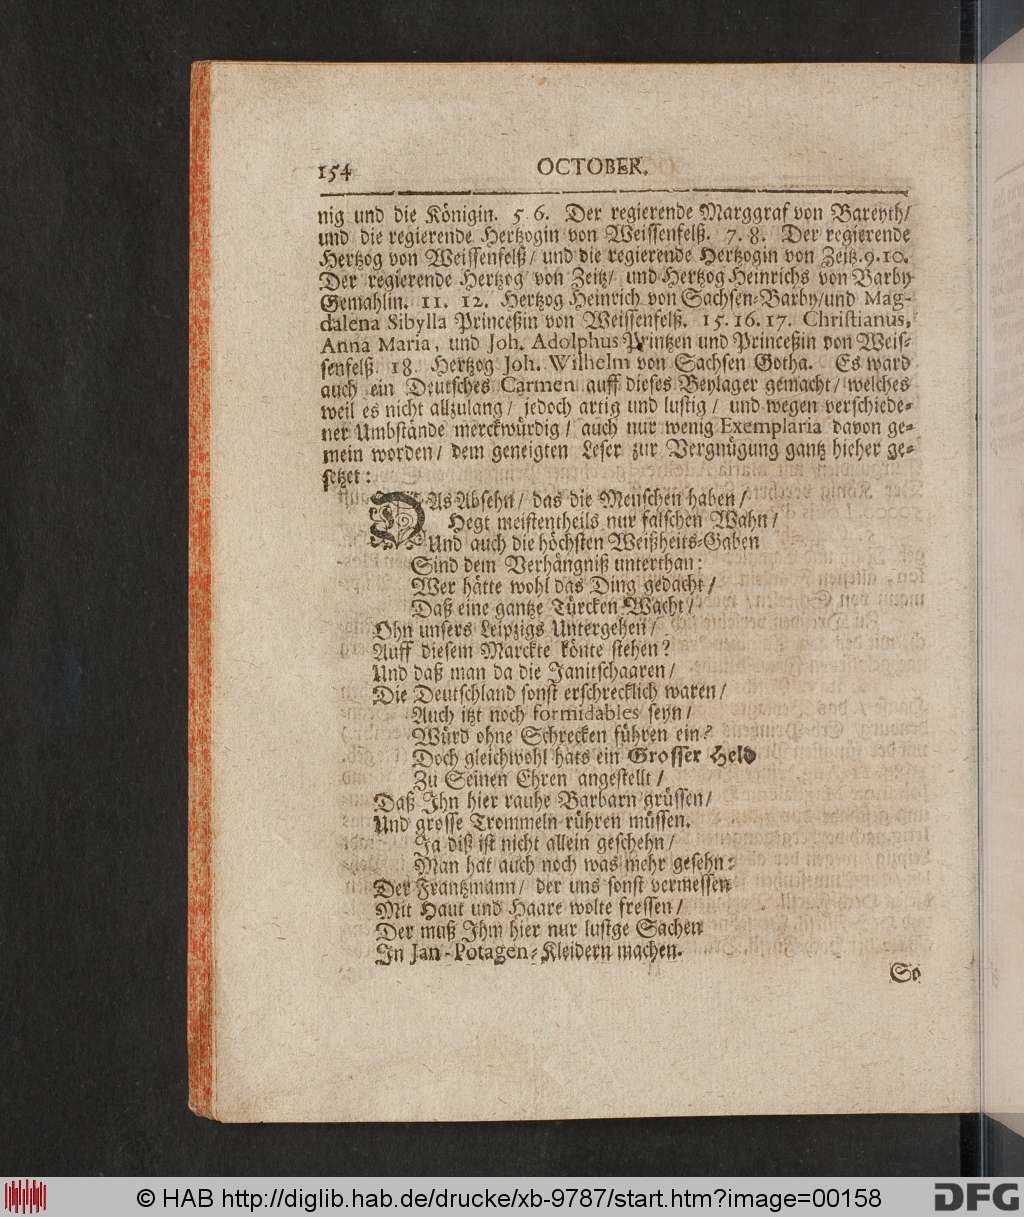 154 OCTOBER.
nig und die Königin. 5 6. Der regierende Marggraf von Bareyth/
und die regierende Hertzogin von Weissenfelß. 7. 8. Der regierende
Hertzog von Weissenfelß/ und die regierende Hertzogin von Zeitz. 9. 10.
Der regierende Hertzog von Zeitz/ und Hertzog Heinrichs von Barby
Gemahlin. 11. 12. Hertzog Heinrich von Sachsen-Barby/und Mag-
dalena Sibylla Princeßin von Weissenfelß. 15. 16. 17. Christianus,
Anna Maria, und Joh. Adolphus Printzen und Princeßin von Weis-
senfelß. 18. Hertzog Joh. Wilhelm von Sachsen Gotha. Es ward
auch ein Deutsches Carmen auff dieses Beylager gemacht/ welches
weil es nicht allzulang/ jedoch artig und lustig/ und wegen verschiede-
ner Umbstände merckwürdig/ auch nur wenig Exemplaria davon ge-
mein worden/ dem geneigten Leser zur Vergnügung gantz hieher ge-
setzet:
DAs Absehn/ das die Menschen haben/
Hegt meistentheils nur falschen Wahn/
Und auch die höchsten Weißheits-Gaben
Sind dem Verhängniß unterthan:
Wer hätte wohl das Ding gedacht/
Daß eine gantze Türcken-Wacht/
Ohn unsers Leipzigs Untergehen/
Auff diesem Marckte könte stehen?
Und daß man da die Janitschaaren/
Die Deutschland sonst erschrecklich waren/
Auch itzt noch formidables seyn/
Würd ohne Schrecken führen ein?
Doch gleichwohl hats ein Grosser Held
Zu Seinen Ehren angestellt/
Daß Ihn hier rauhe Barbarn grüssen/
Und grosse Trommeln rühren müssen.
Ja diß ist nicht allein geschehn/
Man hat auch noch was mehr gesehn:
Der Frantzmann/ der uns sonst vermessen
Mit Haut und Haare wolte fressen/
Der muß Ihm hier nur lustge Sachen
In Jan-Potagen-Kleidern machen.
So
© HAB http://diglib.hab.de/drucke/xb-9787/start.htm?image=00158
DFG